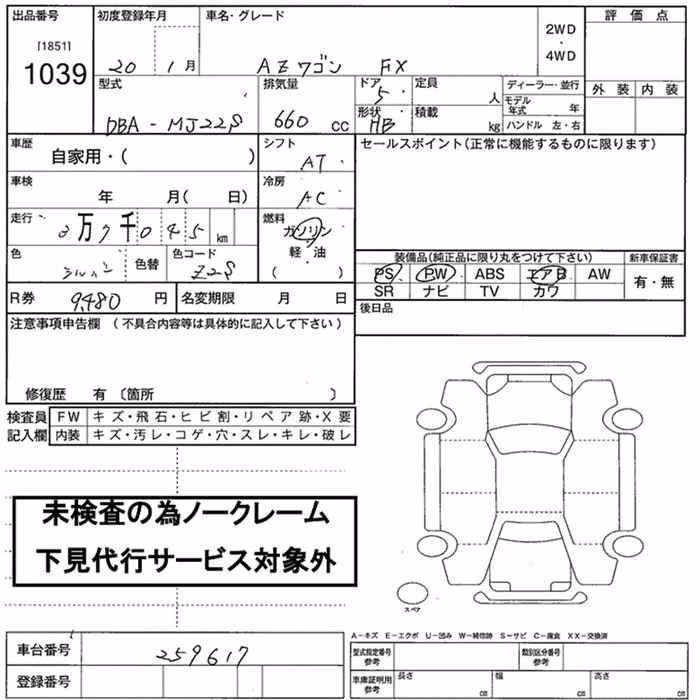 出品番号 初度登録年月 車名・グレード 2WD・4WD 評価点
[1851]
1039
20 1月 AZワゴン FX
型式 排気量 ドア 定員 ディーラー・並行 外装 内装
5 人 モデル年式 年
DBA-MJ22S 660 cc 形状 積載 ハンドル 左・右
HB kg
車歴 自家用・( ) シフト AT セールスポイント(正常に機能するものに限ります)
車検 年 月( 日) 冷房 AC
走行 2万7千045km 燃料 ガソリン
軽・油
( )
色 シルバー 色替 色コード Z2S 装備品(純正品に限り丸をつけて下さい) 新車保証書
PS PW ABS エアB AW 有・無
SR ナビ TV カワ
R券 9,480円 名変期限 月 日 後日品
注意事項申告欄(不具合内容等は具体的に記入して下さい)
修復歴 有〔箇所 〕
検査員 FW キズ・飛石・ヒビ割・リペア跡・X要
記入欄 内装 キズ・汚レ・コゲ・穴・スレ・キレ・破レ
未検査の為ノークレーム
下見代行サービス対象外
スペア
A-キズ E-エクボ U-凹み W-補修跡 S-サビ C-腐食 XX-交換済
車台番号 259617 型式指定番号 参考 類別区分番号 参考
登録番号 車庫証明用 参考 長さ cm 幅 cm 高さ cm